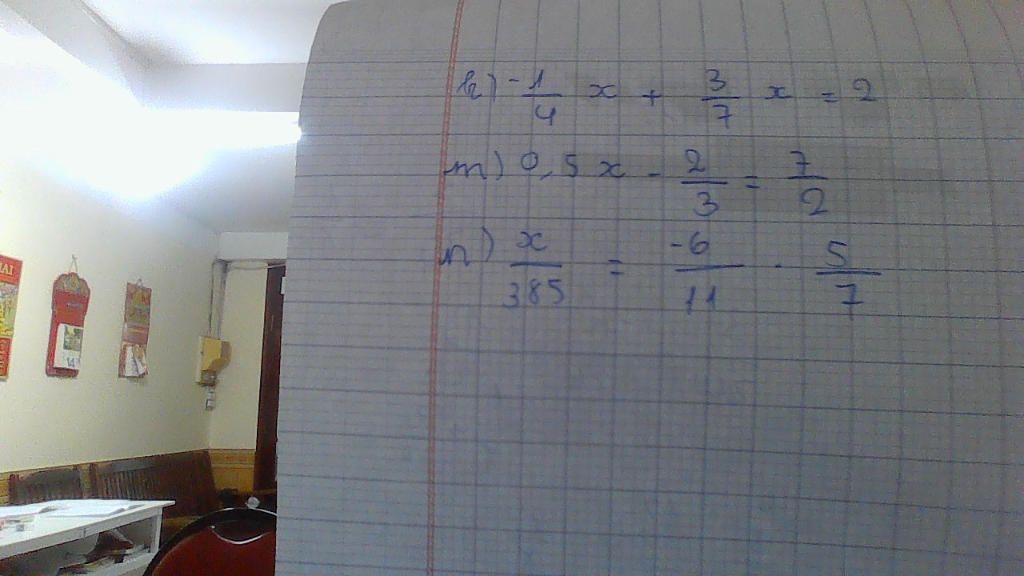 h) -1/4 x + 3/7 x = 2
m) 0,5 x - 2/3 = 7/2
n) x/385 = -6/11 . 5/7